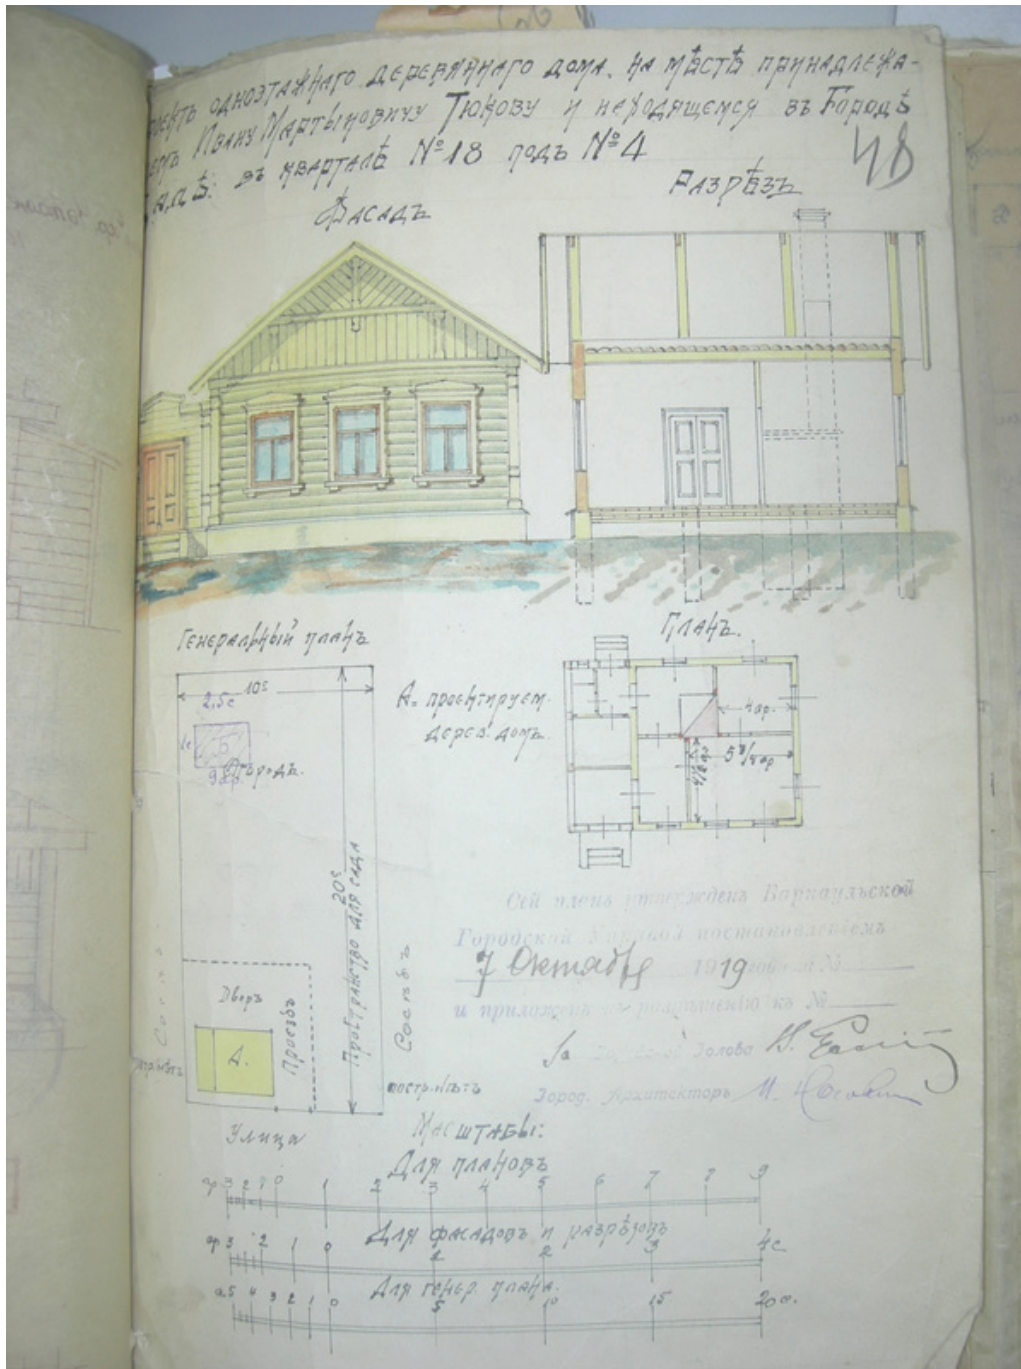 одноэтажнаго деревяннаго дома. на мѣстѣ принадлежа-
Ивану Мартыновичу Тюкову и находящемся въ Городѣ
въ кварталѣ №18 подъ №4
48
Фасадъ
Разрѣзъ
Генеральный планъ
Планъ.
10с
2,5с
1с
Б
9 ар.
Огородъ.
А= проектируем.
дерев. домъ.
4 ар.
Пространство для сада
20с
Сосѣдъ
Дворъ
А.
Проѣздъ
постр. нѣтъ
Улица
Сей планъ утвержденъ Барнаульской
Городской Управой постановленіемъ
7 Октября 1919 года за №
и приложенъ къ разрѣшенію къ №
За Городской Голова
Город. Архитекторъ
Масштабы:
Для плановъ
ар 3 2 1 0 1 2 3 4 5 6 7 8 9
Для фасадовъ и разрѣзовъ
ар 3 2 1 0 1 2 3 4с
Для генер. плана.
5 4 3 2 1 0 5 10 15 20 с.